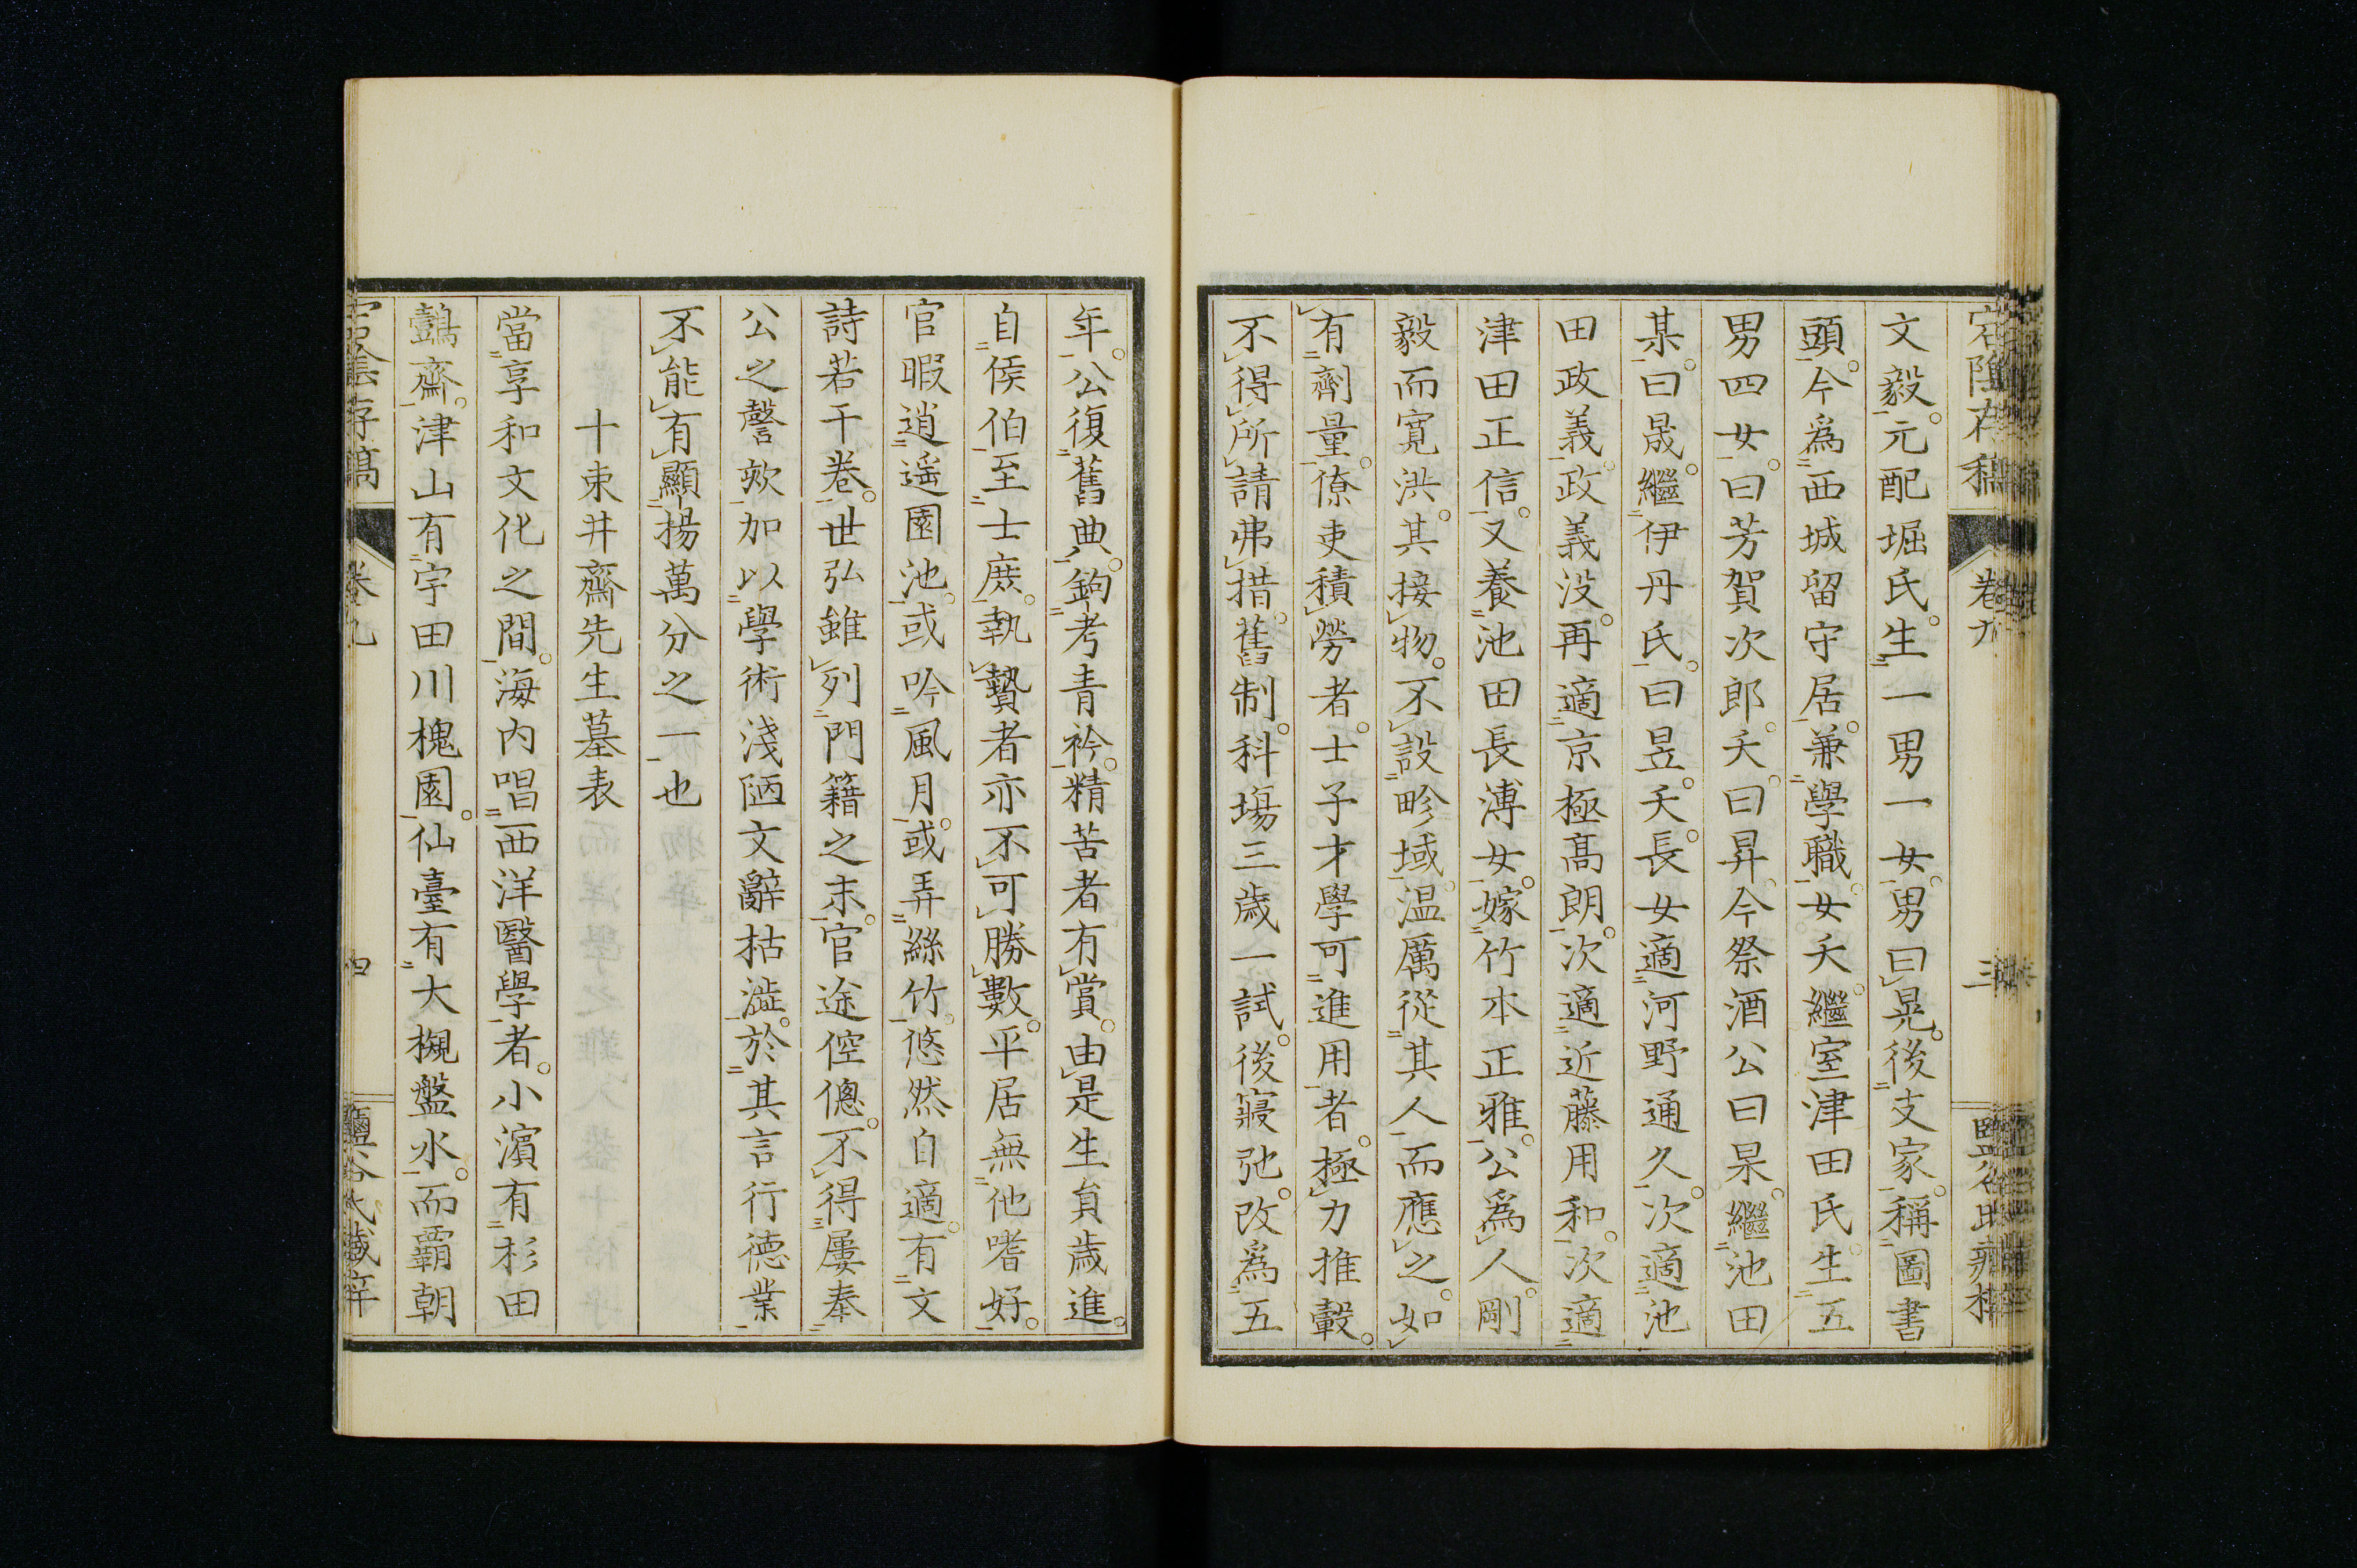 宕陰存稿 卷九 三
文毅。元配堀氏。生一男一女。男曰晃。後支家。稱圖書
頭。今爲西城留守居。兼學職。女夭。繼室津田氏。生五
男四女。曰芳賀次郎。夭。曰昇。今祭酒公曰杲。繼池田
某。曰晟。繼伊丹氏。曰昱。夭。長女適河野通久。次適池
田政義。政義没。再適京極高朗。次適近藤用和。次適
津田正信。又養池田長溥女。嫁竹本正雅。公爲人剛
毅而寛洪。其接物。不設畛域。温厲從其人而應之。如
有劑量。僚吏積勞者。士子才學可進用者。極力推轂。
不得所請弗措。舊制。科塲三歳一試。後寢弛。改爲五
年。公復舊典。鉤考青衿。精苦者有賞。由是生員歳進。
自侯伯至士庶。執贄者亦不可勝數。平居無他嗜好。
官暇逍遥園池。或吟風月。或弄絲竹。悠然自適。有文
詩若干卷。世弘雖列門籍之末。官途倥偬。不得屢奉
公之謦欬。加以學術淺陋文辭枯澁。於其言行徳業
不能有顯揚萬分之一也
十束井齋先生墓表
當享和文化之間。海内唱西洋醫學者。小濱有杉田
鷧齋。津山有宇田川槐園。仙臺有大槻盤水。而覇朝
宕陰存稿 卷九 四 鹽谷氏藏梓